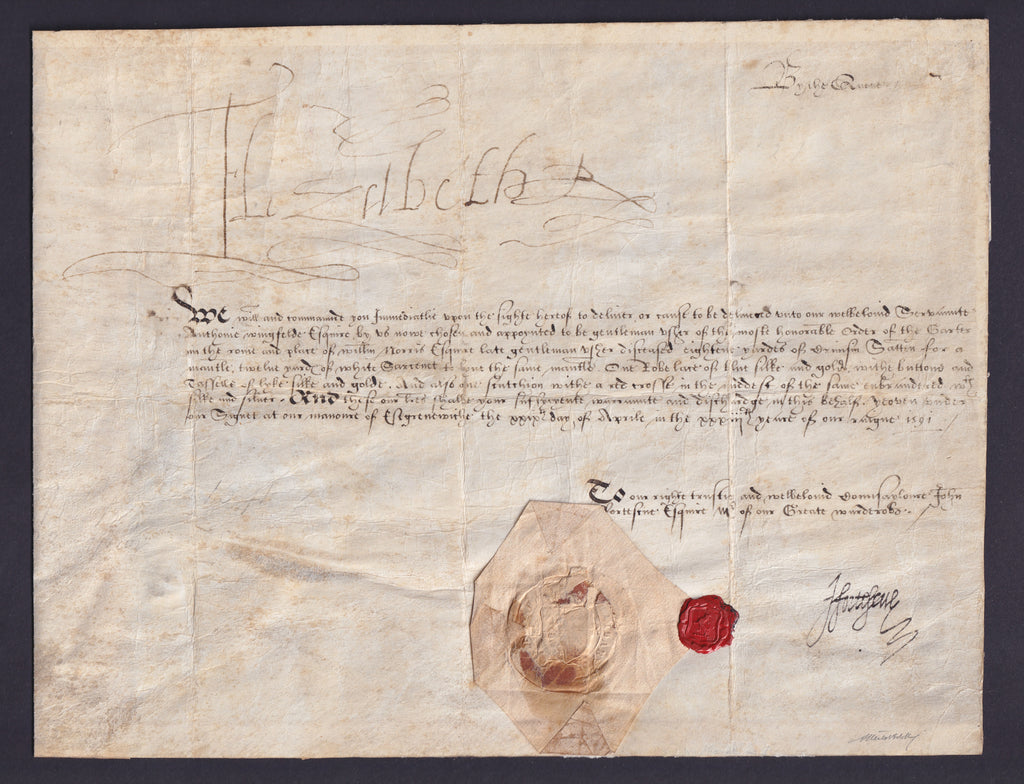 By the Quene
Elizabeth R
We will and commaunde you Immediatlie upon the sighte hereof to deliver, or cause to be delivered unto our welbeloved Servaunte
Anthonie wingfelde Esquire by us nowe chosen and appoynted to be gentleman Ussher of the moste honorable Order of the Garter
in the rome and place of willm Norris Esquire late gentleman Ussher disceased eightene yardes of Crimsin Satten for a
mantle, twelve yardes of white Sarcenet to lyne the same mantle One Robe lace of blue silke and golde withe buttons and
Tasselle of lyke silke and golde. And also one scutchion withe a red crosse in the middest of the same enbrautered with
silke and silver. And these our lres shalbe your sufficiente warraunte and dischardge in this behalf. Yeoven under
our Signet at our mannore of Estgrenewiche the xxixth day of Aprile in the xxxiijth yeare of our raigne 1591
To our righte trustie and welbelovid Counsayloure John
Fortescue Esquire Mr of our Greate warderobe.
JFortescue